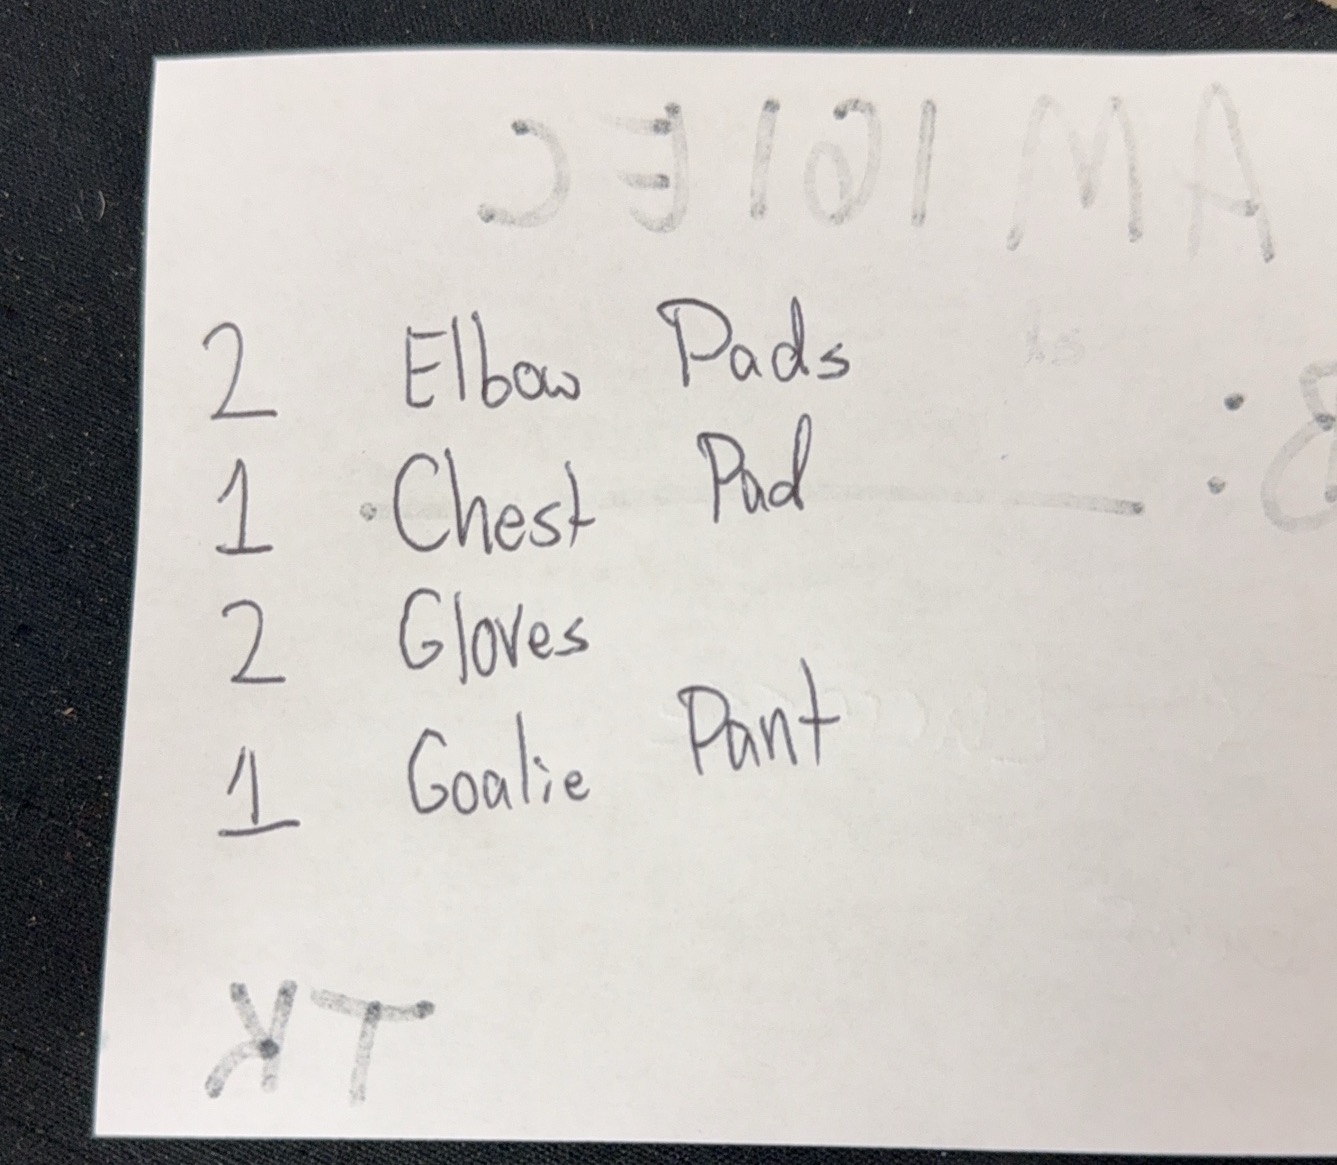 2 Elbow Pads
1 Chest Pad
2 Gloves
1 Goalie Pant